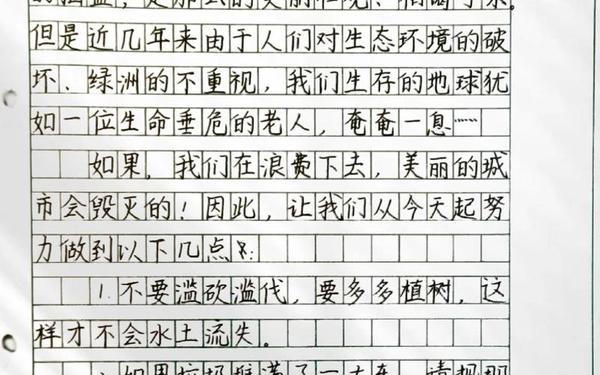 是那么的美丽
但是近几年来由于人们对生态环境的破
坏、绿洲的不重视，我们生存的地球犹
如一位生命垂危的老人，奄奄一息……
如果，我们在浪费下去，美丽的城
市会毁灭的！因此，让我们从今天起努
力做到以下几点：
1.不要滥砍滥伐，要多多植树，这
样才不会水土流失。
如果垃圾堆满了一大车，请把那